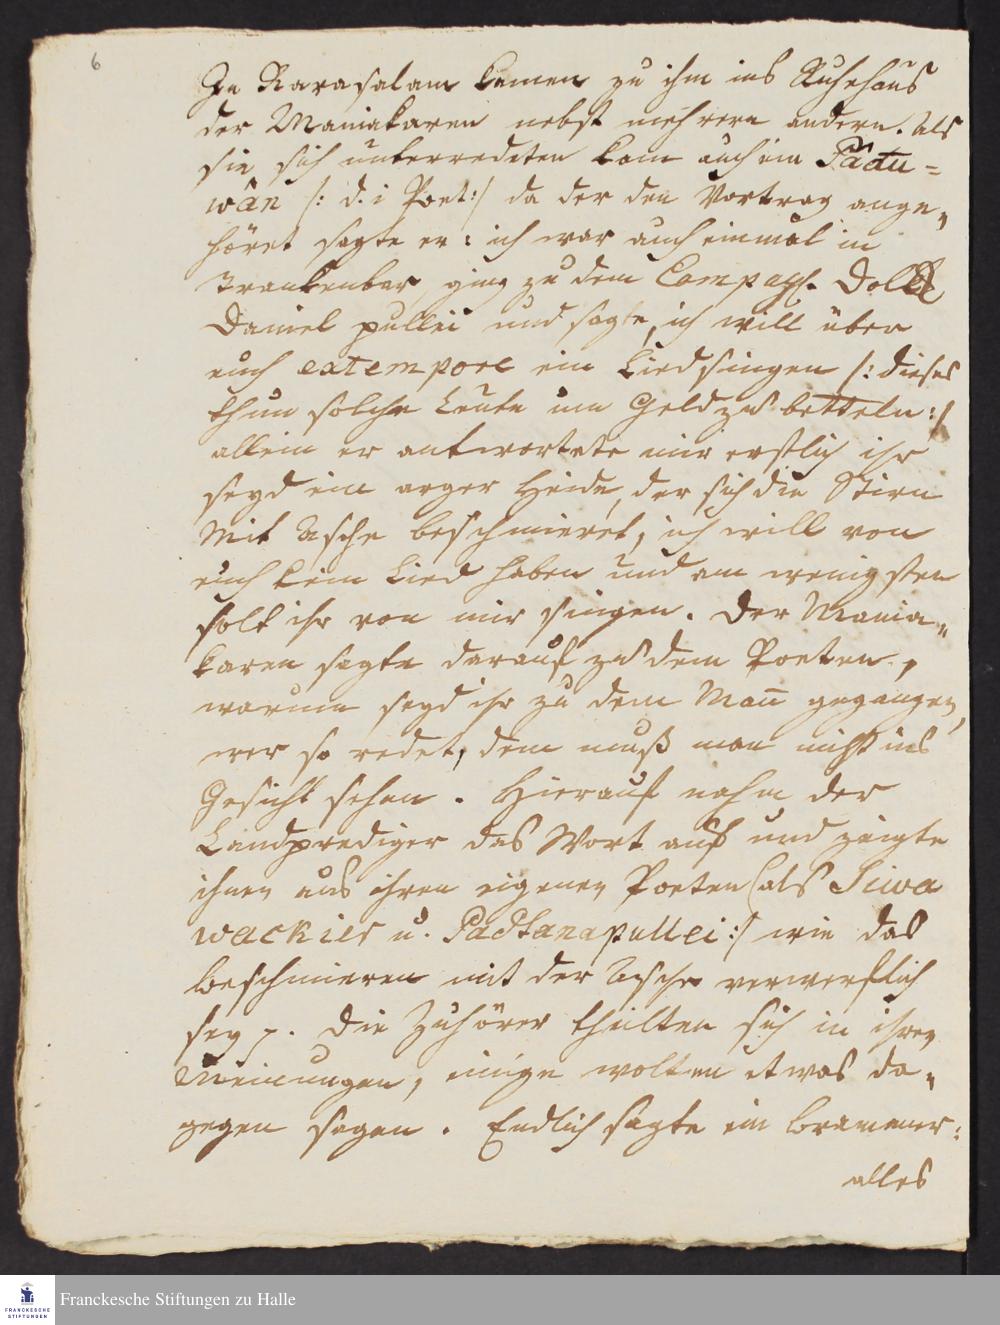 6
In Narasalam kamen zu ihm ins Ruhehaus
der Maniakaren nebst mehrern andern. Als
sie sich unterredeten kam auch ein Pâdu-
wân /: d. i Poet:/ da der den Vortrag ange„
höret sagte er: ich war auch einmal in
Trankenbar, ging zu dem Compagn. Dolle
Daniel pullei und sagte, ich will über
euch extempore ein Lied singen /: dieses
thun solche Leute um Geld zu betteln:/
allein er antwortete mir erstlich ihr
seyd ein arger Heide, der sich die Stirn
Mit Asche beschmieret, ich will von
euch kein Lied haben und am wenigsten
solt ihr von mir singen. Der Mania„
karen sagte darauf zu dem Poeten,
warum seyd ihr zu dem Mañ gegangen,
wer so redet, dem muß man nicht ins
Gesicht sehen. Hierauf nahm der
Landprediger das Wort auf und zeigte
ihnen aus ihren eigenen Poeten (als Siwa
wackier u. Padtanapullei:/ wie das
beschmieren mit der Asche verwerflich
sey . Die Zuhörer theilten sich in ihren
Meinungen, einige wolten etwas da„
gegen sagen. Endlich sagte ein Bramaner:
alles
FRANCKESCHE
STIFTUNGEN
Franckesche Stiftungen zu Halle